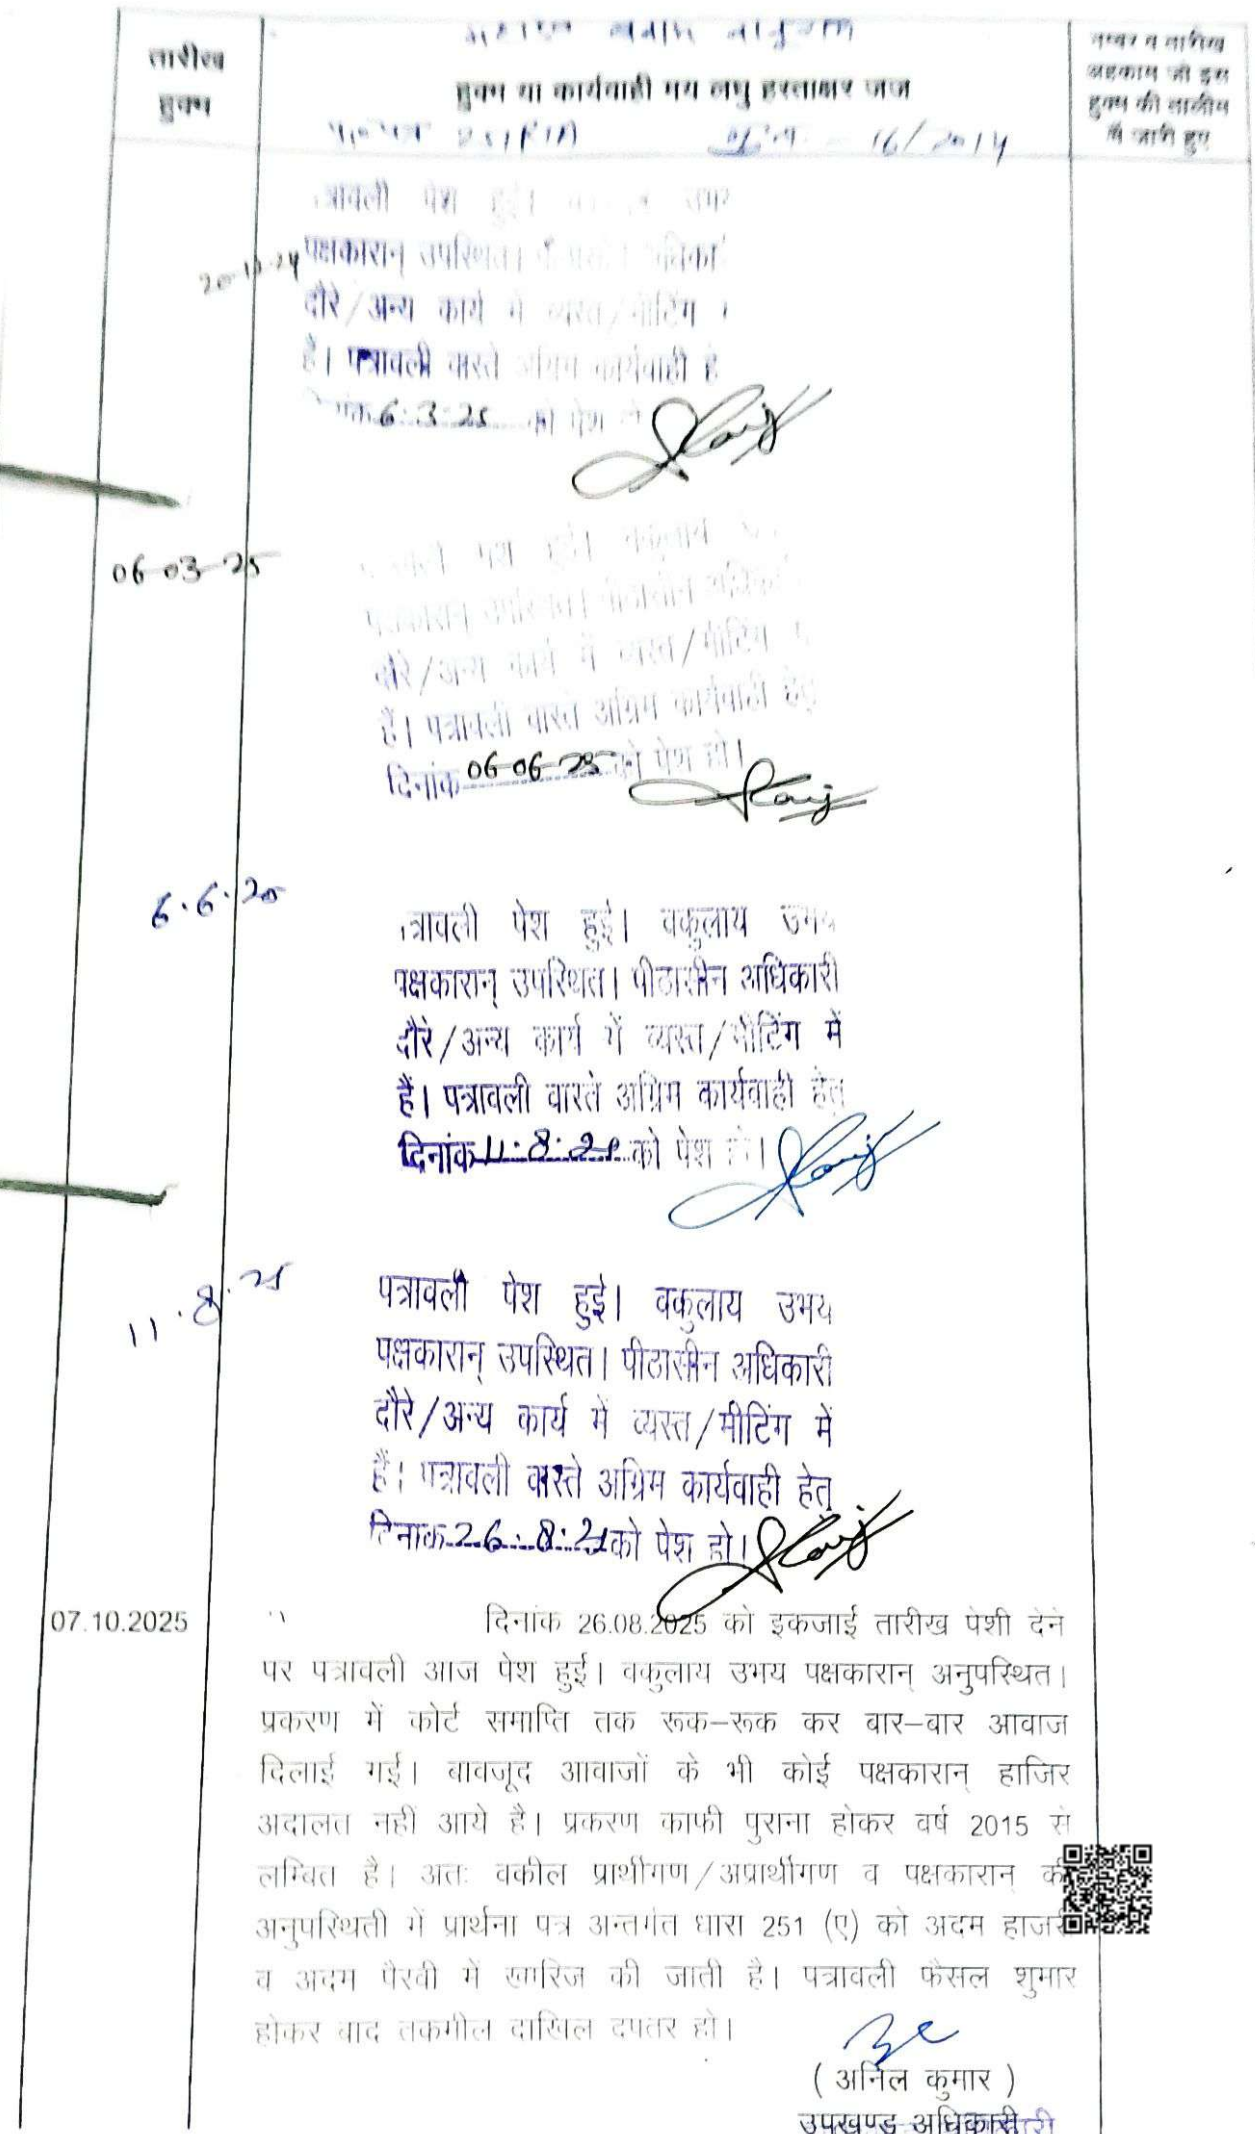 बनाम
तारीख
हुक्म
हुक्म या कार्यवाही मय लघु हस्ताक्षर जज
नम्बर व तारीख
अहकाम जो इस
हुक्म की तालीम
में जारी हुए
16/2014
त्रावली पेश हुई। उभय
20-12-24
पक्षकारान् उपस्थित।
दौरे/अन्य कार्य में व्यस्त/मीटिंग
है। पत्रावली वास्ते अग्रिम कार्यवाही हे
दिनांक 6.3.25 को पेश
06-03-25
पेश हुई। वकुलाय
पक्षकारान् उपस्थित। पीठासीन अधिका
दौरे/अन्य कार्य में व्यस्त/मीटिंग
हैं। पत्रावली वास्ते अग्रिम कार्यवाही हेतु
दिनांक 06-06-25 को पेश हो।
6.6.25
त्रावली पेश हुई। वकुलाय उभय
पक्षकारान् उपस्थित। पीठासीन अधिकारी
दौरे/अन्य कार्य में व्यस्त/मीटिंग में
हैं। पत्रावली वास्ते अग्रिम कार्यवाही हेतु
दिनांक 11.8.25 को पेश हो।
11.8.25
पत्रावली पेश हुई। वकुलाय उभय
पक्षकारान् उपस्थित। पीठासीन अधिकारी
दौरे/अन्य कार्य में व्यस्त/मीटिंग में
हैं। पत्रावली वास्ते अग्रिम कार्यवाही हेतु
दिनांक 26.8.25 को पेश हो।
07.10.2025
दिनांक 26.08.2025 को इकजाई तारीख पेशी देने
पर पत्रावली आज पेश हुई। वकुलाय उभय पक्षकारान् अनुपस्थित।
प्रकरण में कोर्ट समाप्ति तक रूक–रूक कर बार–बार आवाज
दिलाई गई। बावजूद आवाजों के भी कोई पक्षकारान् हाजिर
अदालत नहीं आये है। प्रकरण काफी पुराना होकर वर्ष 2015 से
लम्बित है। अतः वकील प्रार्थीगण/अप्रार्थीगण व पक्षकारान् की
अनुपस्थिती में प्रार्थना पत्र अन्तर्गत धारा 251 (ए) को अदम हाजरी
व अदम पैरवी में खारिज की जाती है। पत्रावली फैसल शुमार
होकर बाद तकमील दाखिल दफ्तर हो।
( अनिल कुमार )
उपखण्ड अधिकारी